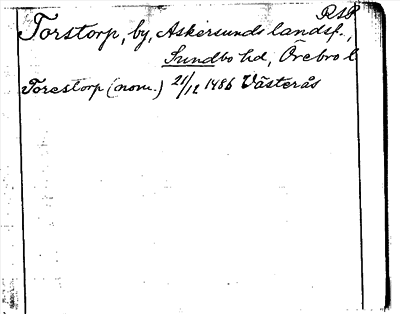 RAP
Torstorp, by, Askersunds landsf.,
Sundbo hd, Örebro l
Torestorp (nom.) 21/12 1486 Västerås